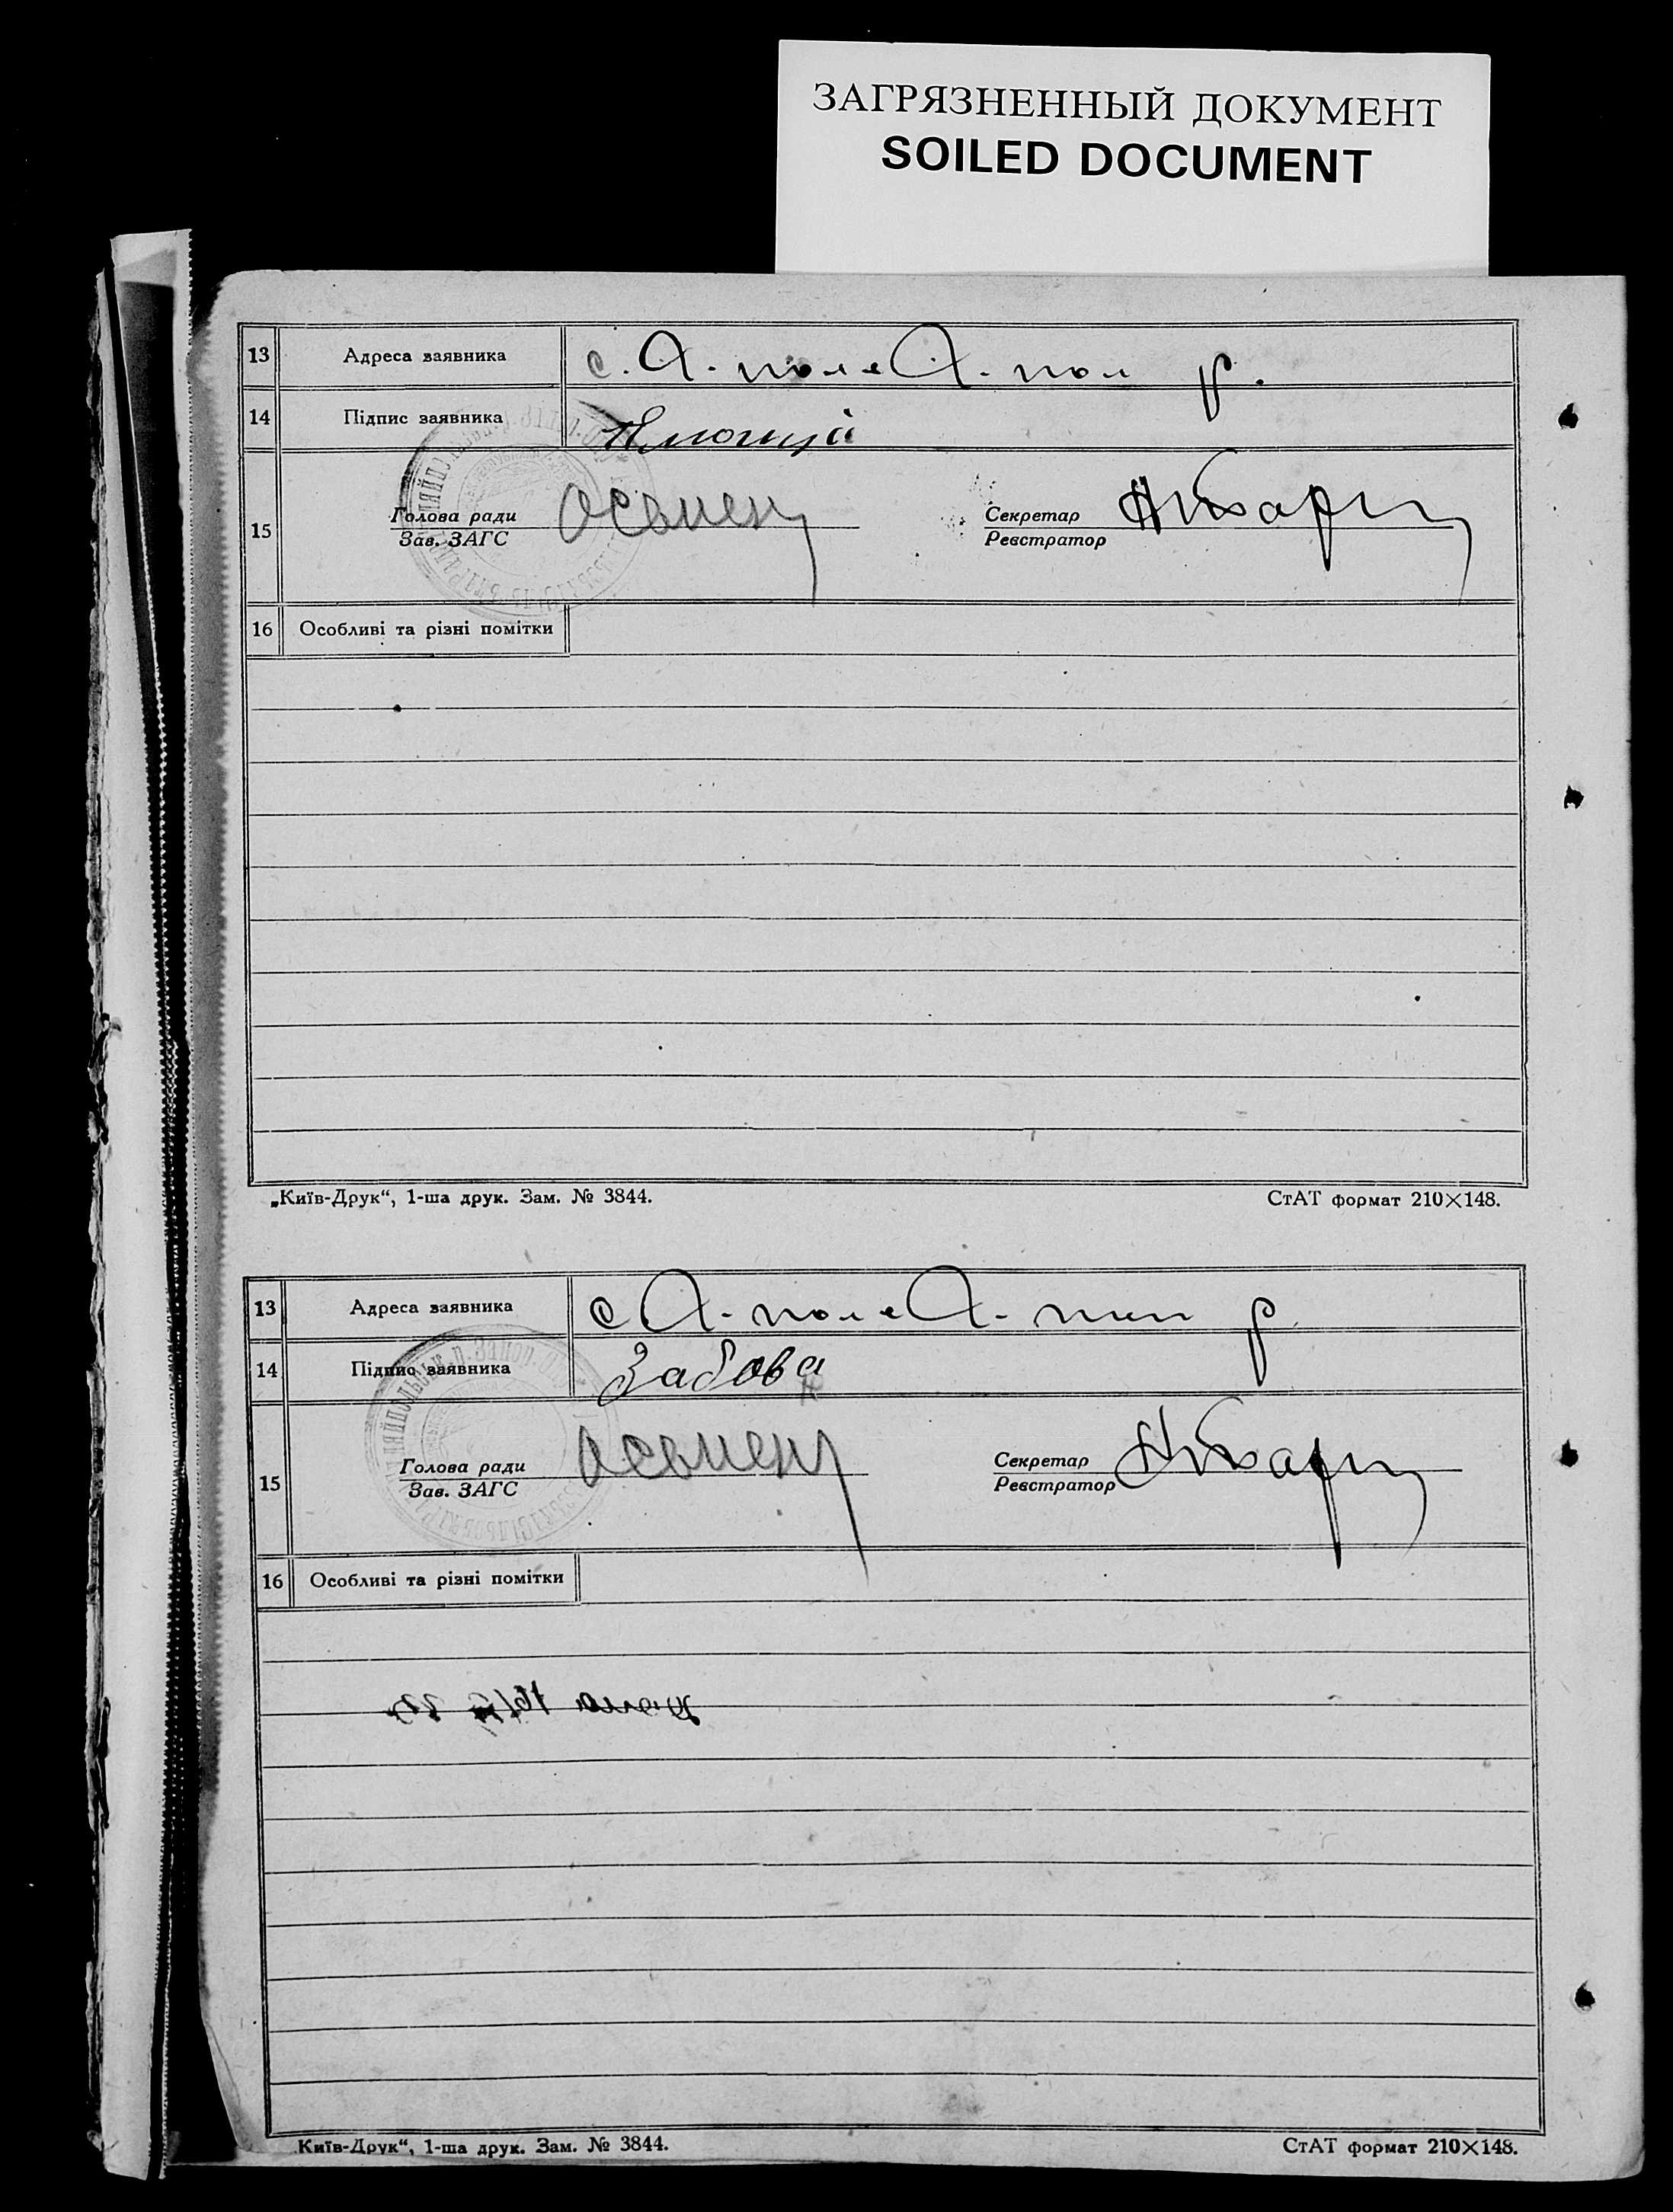 ЗАГРЯЗНЕННЫЙ ДОКУМЕНТ
SOILED DOCUMENT
13 Адреса заявника с. А-поле А-пол р.
14 Підпис заявника
15 Голова ради
Зав. ЗАГС
Секретар
Реєстратор
16 Особливі та різні помітки
„Київ-Друк“, 1-ша друк. Зам. № 3844. СтАТ формат 210×148.
13 Адреса заявника с А-поле А-пол р
14 Підпис заявника Забова
15 Голова ради
Зав. ЗАГС
Секретар
Реєстратор
16 Особливі та різні помітки
Київ-Друк“, 1-ша друк. Зам. № 3844. СтАТ формат 210×148.